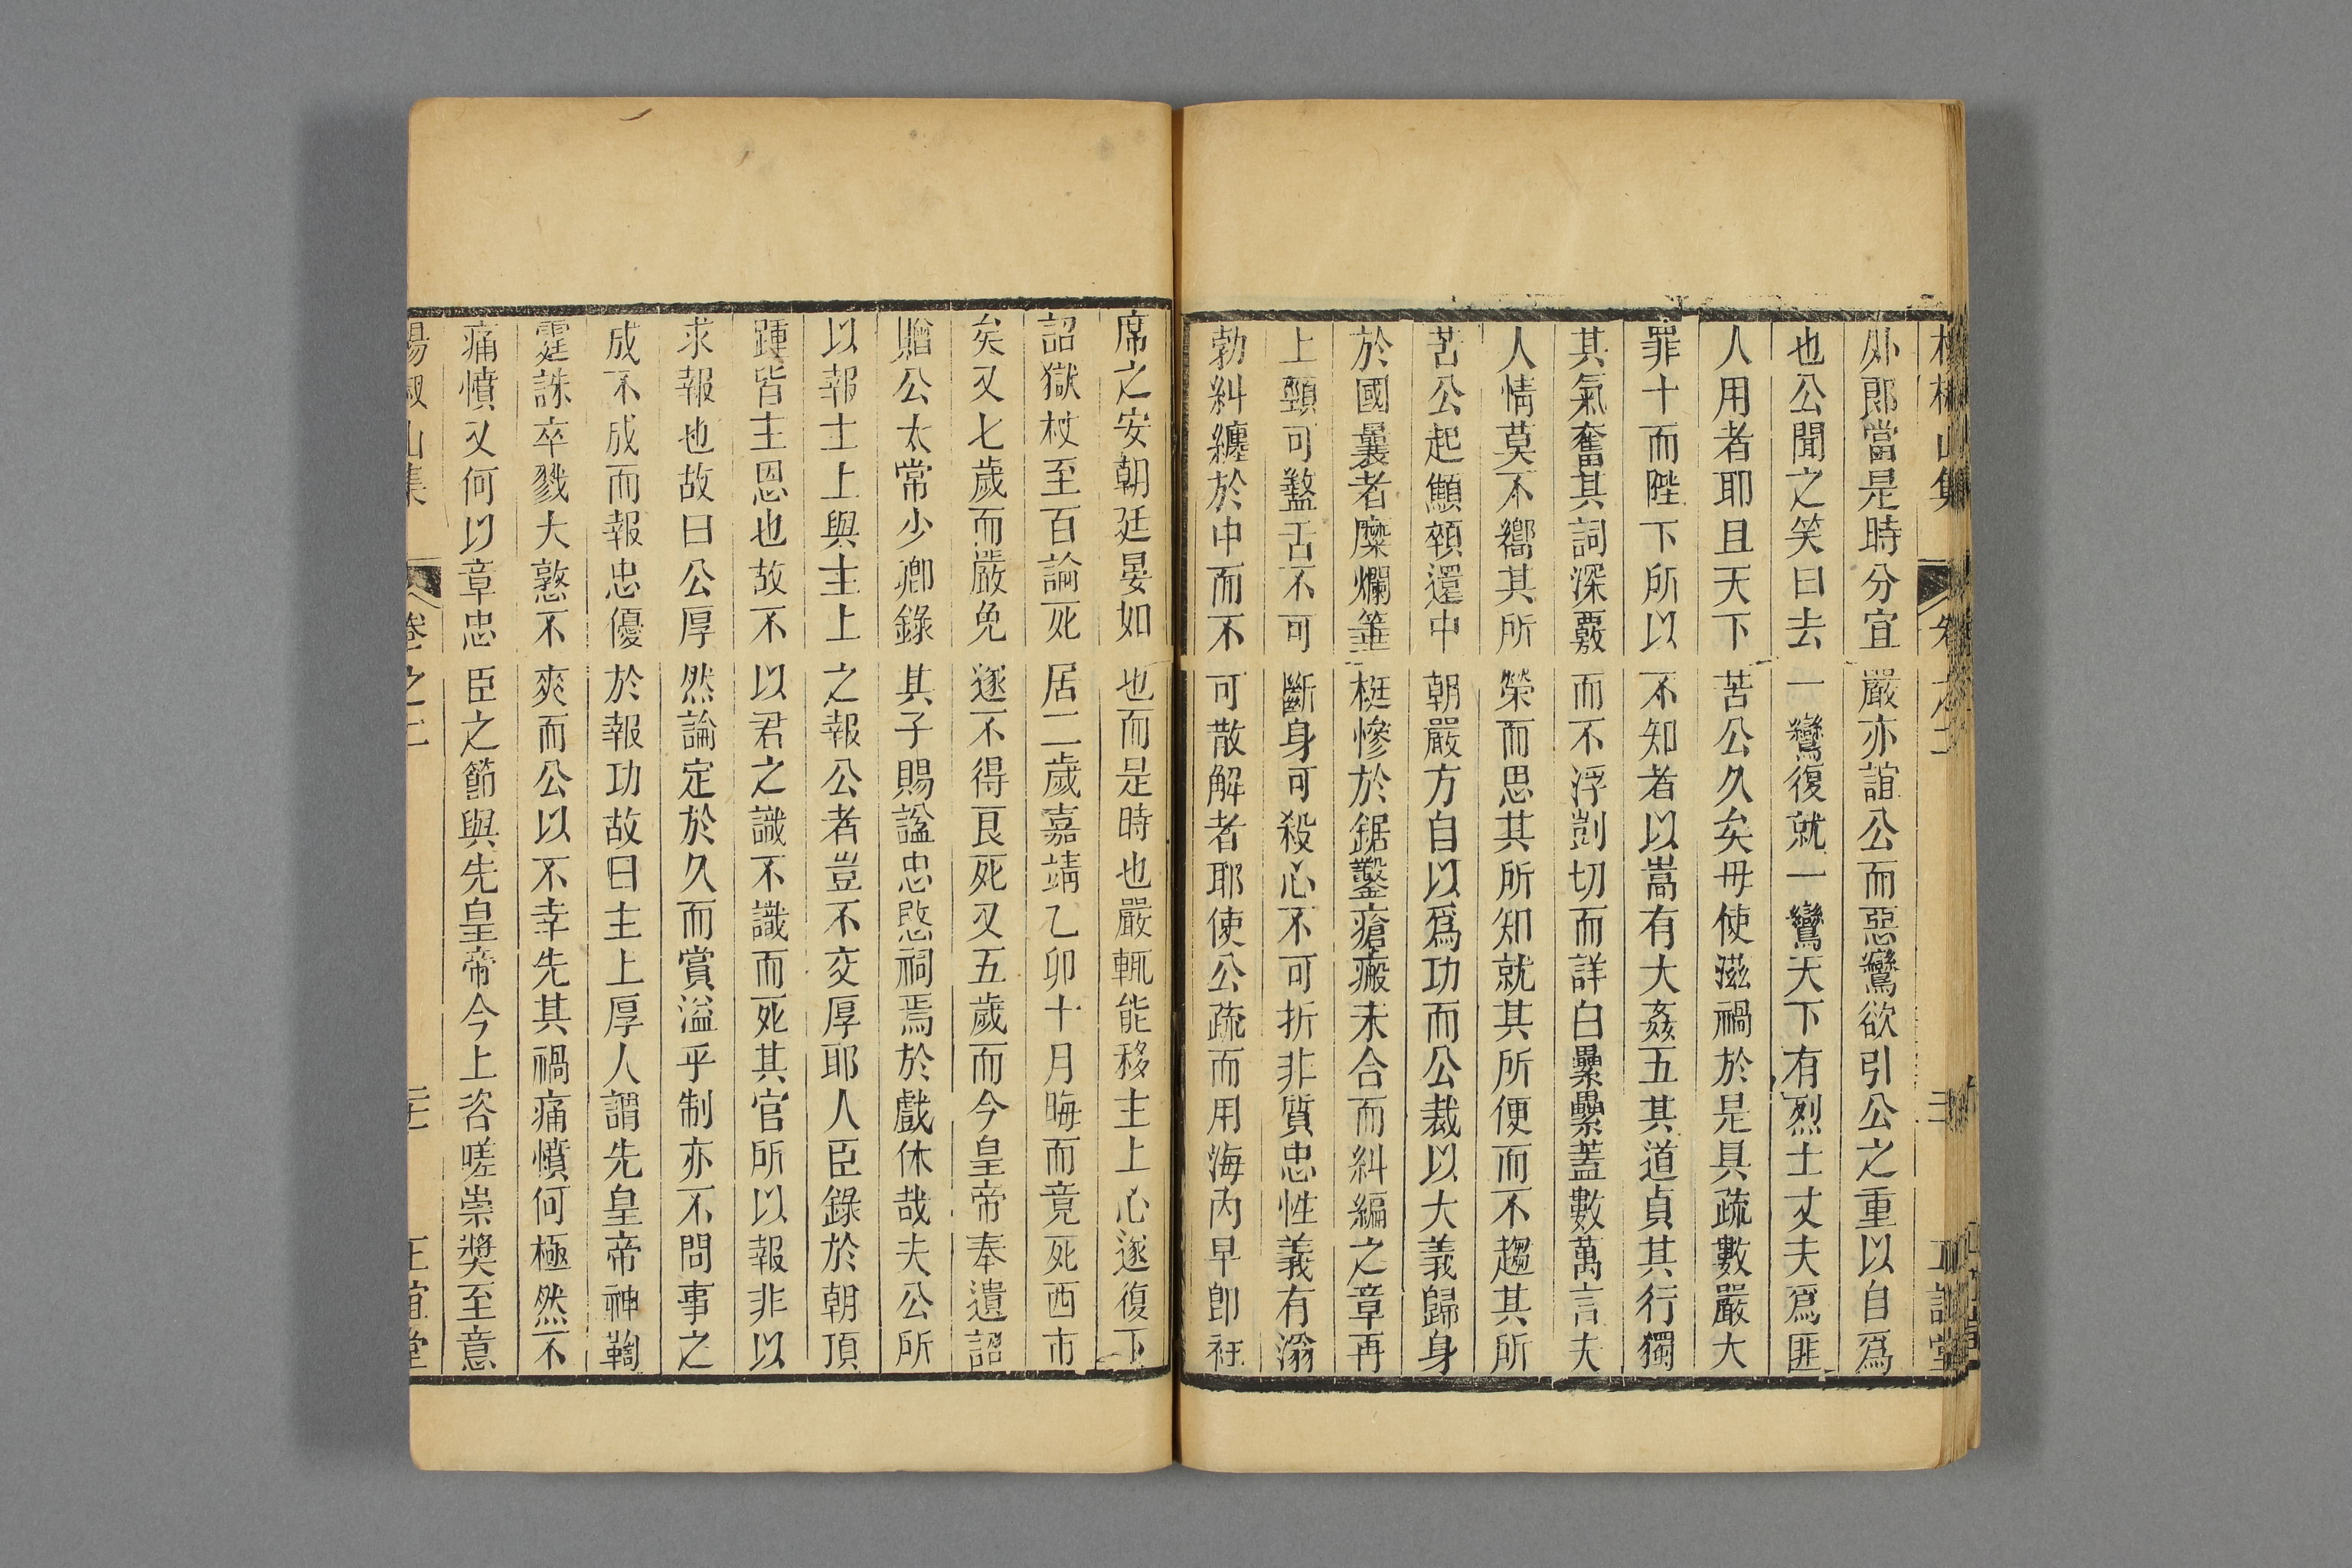 外郎當是時分宜嚴亦誼公而惡鸞欲引公之重以自爲
也公聞之笑曰去一鸞復就一鸞天下有烈士丈夫爲匪
人用者耶且天下苦公久矣毋使滋禍於是具疏數嚴大
罪十而陛下所以不知者以嵩有大姦五其道貞其行獨
其氣奮其詞深覈而不浮剴切而詳白纍纍蓋數萬言夫
人情莫不嚮其所榮而思其所知就其所便而不趨其所
苦公起顑頷還中朝嚴方自以爲功而公裁以大義歸身
於國曩者糜爛箠梃慘於鋸鑿瘡瘢未合而糾編之章再
上頸可盭舌不可斷身可殺心不可折非質忠性義有滃
勃糾纏於中而不可散解者耶使公疏而用海內早卽衽
席之安朝廷晏如也而是時也嚴輒能移主上心遂復下
詔獄杖至百論死居二歲嘉靖乙卯十月晦而竟死西市
矣又七歲而嚴免逐不得良死又五歲而今皇帝奉遺詔
贈公太常少卿錄其子賜諡忠愍祠焉於戲休哉夫公所
以報主上與主上之報公者豈不交厚耶人臣錄於朝頂
踵皆主恩也故不以君之識不識而死其官所以報非以
求報也故曰公厚然論定於久而賞溢乎制亦不問事之
成不成而報忠優於報功故曰主上厚人謂先皇帝神鞫
霆誅卒戮大憝不爽而公以不幸先其禍痛憤何極然不
痛憤又何以章忠臣之節與先皇帝今上咨嗟崇獎至意
楊椒山集 卷之二 三 正誼堂